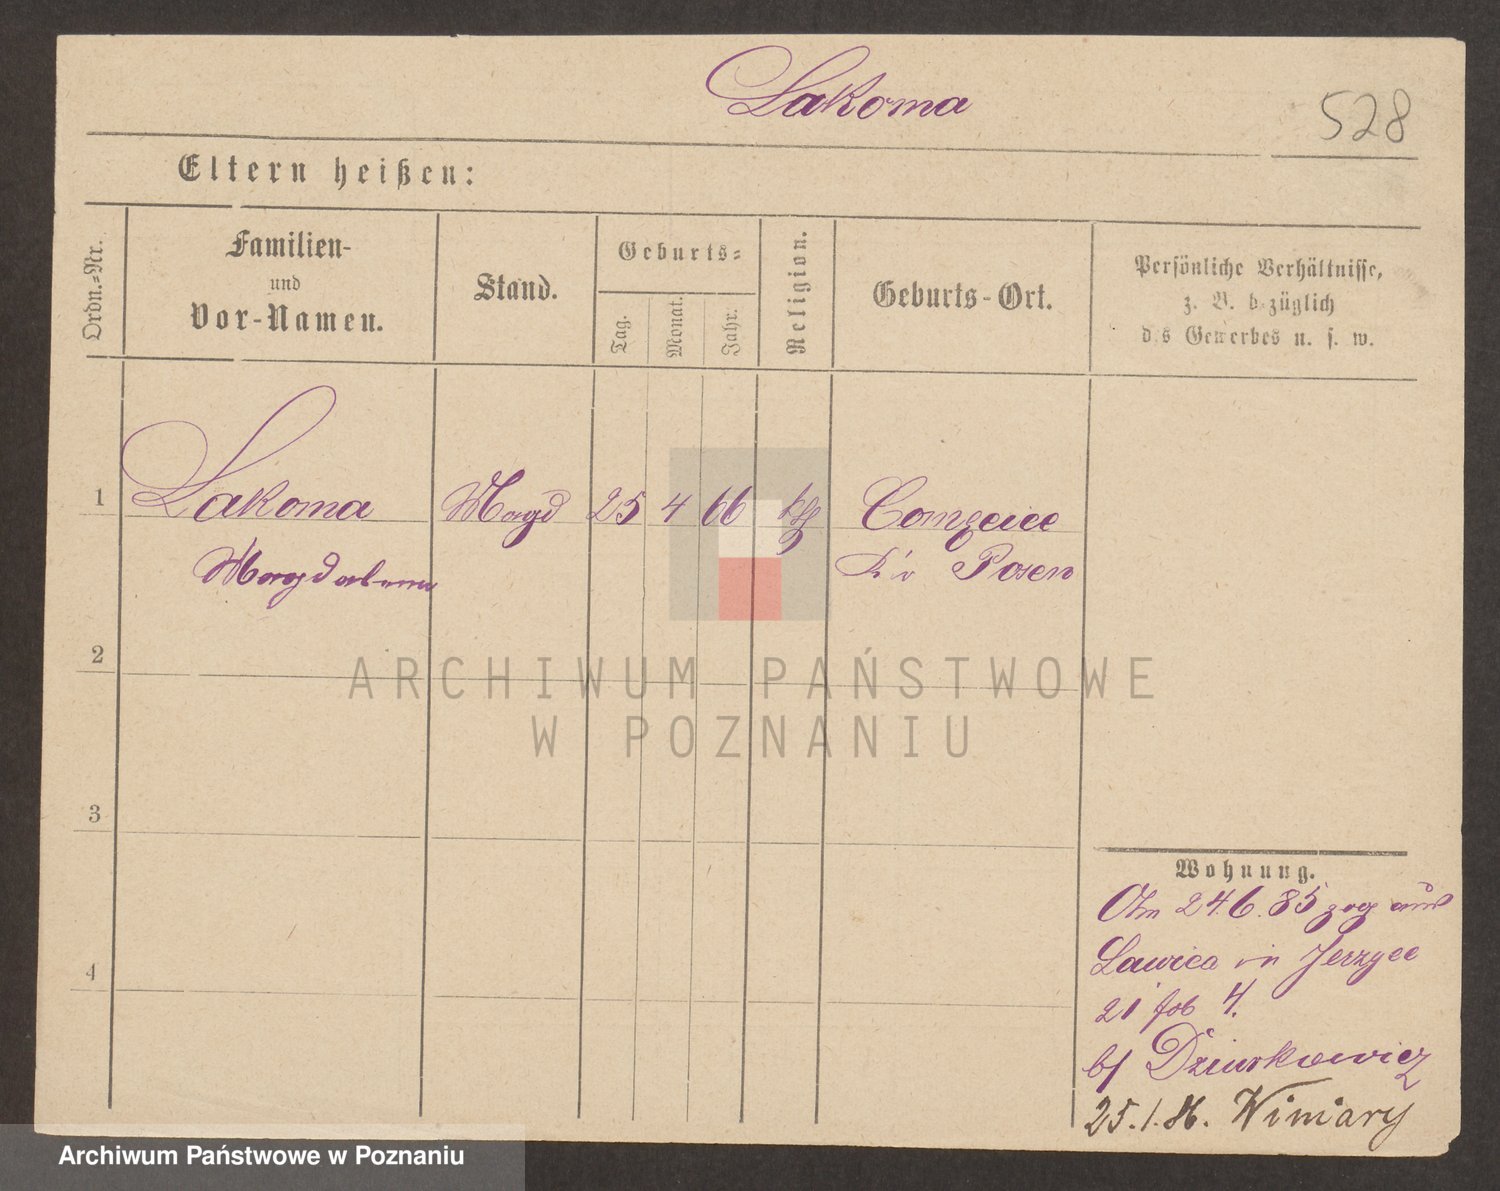 Lakoma
528
Eltern heißen:
Ordn.-Nr.
Familien-
und
Vor-Namen.
Stand.
Geburts-
Tag.
Monat.
Jahr.
Religion.
Geburts-Ort.
Persönliche Verhältnisse,
z. B. bezüglich
des Gewerbes u. s. w.
1 Lakoma Magd 25 4 66 kth
Magdalena Posen
2
3
4
Wohnung.
24.6.85 zog aus
Lawica in Jerzyce
21 4.
b/ Dziurkowicz
25.1.86. Winiary
ARCHIWUM PAŃSTWOWE
W POZNANIU
Archiwum Państwowe w Poznaniu